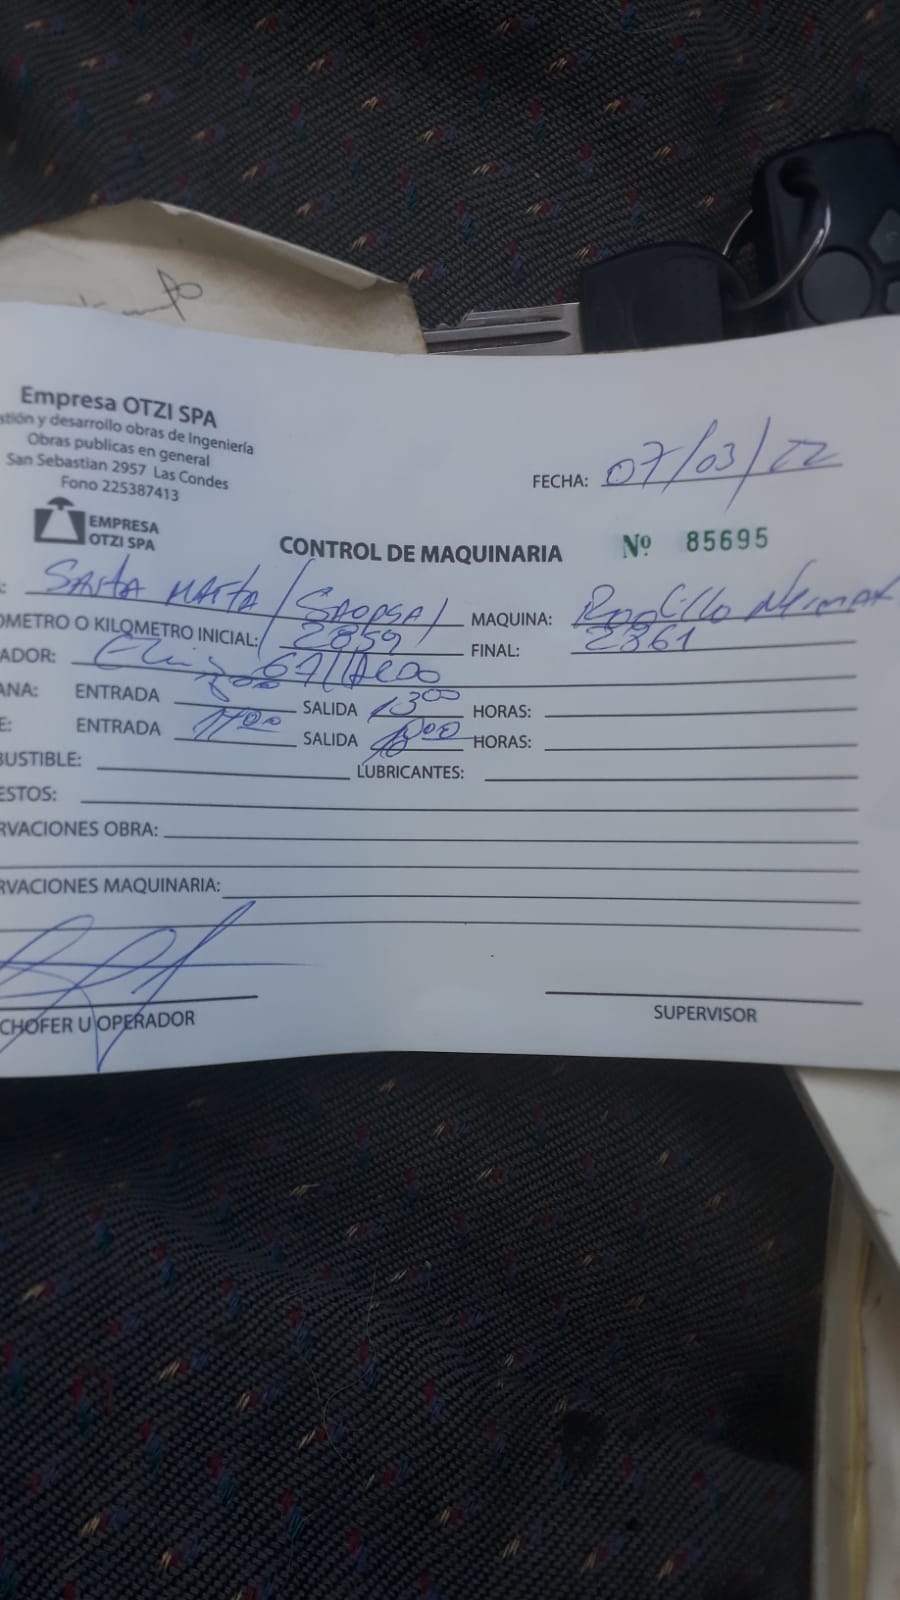 Empresa OTZI SPA
stión y desarrollo obras de Ingeniería
Obras publicas en general
San Sebastian 2957 Las Condes
Fono 225387413
EMPRESA
OTZI SPA
FECHA: 07/03/22
CONTROL DE MAQUINARIA Nº 85695
: SANTA MARTA / MAQUINA: Rodillo
OMETRO O KILOMETRO INICIAL: 2859 FINAL: 2861
ADOR:
ANA: ENTRADA 800 SALIDA 1300 HORAS:
E: ENTRADA 1400 SALIDA 1800 HORAS:
BUSTIBLE: LUBRICANTES:
ESTOS:
RVACIONES OBRA:
RVACIONES MAQUINARIA:
CHOFER U OPERADOR SUPERVISOR